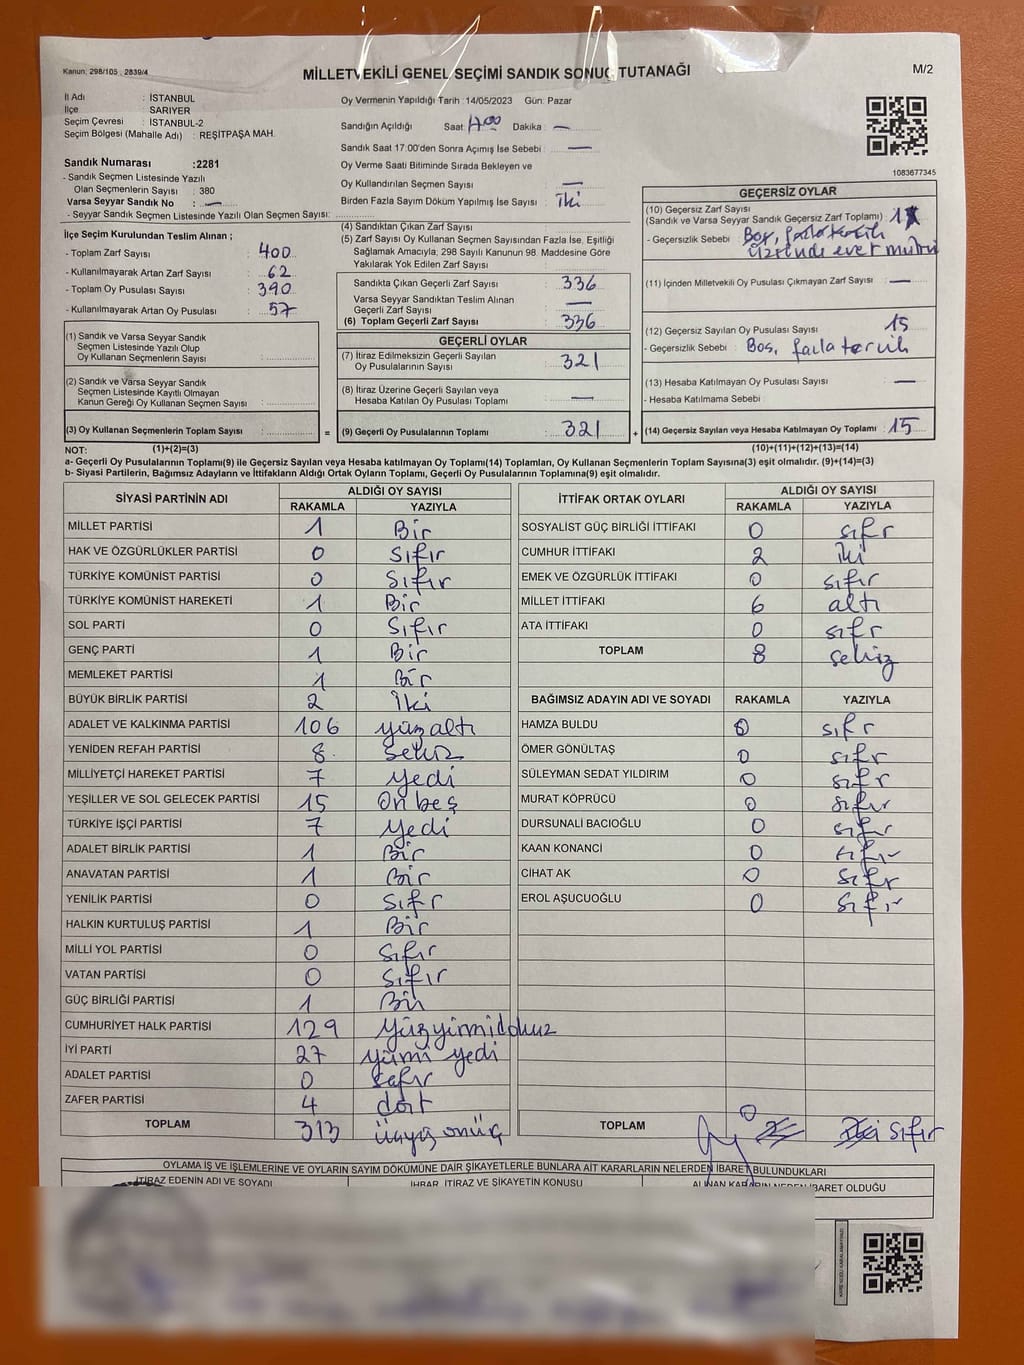 Kanun; 298/105 ; 2839/4
MİLLETVEKİLİ GENEL SEÇİMİ SANDIK SONUÇ TUTANAĞI
M/2
İl Adı : İSTANBUL
İlçe : SARIYER
Seçim Çevresi : İSTANBUL-2
Seçim Bölgesi (Mahalle Adı) : REŞİTPAŞA MAH.
Sandık Numarası :2281
- Sandık Seçmen Listesinde Yazılı
Olan Seçmenlerin Sayısı : 380
Varsa Seyyar Sandık No : —
- Seyyar Sandık Seçmen Listesinde Yazılı Olan Seçmen Sayısı:
Oy Vermenin Yapıldığı Tarih :14/05/2023 Gün: Pazar
Sandığın Açıldığı Saat 17:00 Dakika —
Sandık Saat 17:00'den Sonra Açımış İse Sebebi : —
Oy Verme Saati Bitiminde Sırada Bekleyen ve
Oy Kullandırılan Seçmen Sayısı : —
Birden Fazla Sayım Döküm Yapılmış İse Sayısı : İki
1083677345
İlçe Seçim Kurulundan Teslim Alınan ;
- Toplam Zarf Sayısı : 400
- Kullanılmayarak Artan Zarf Sayısı : 62
- Toplam Oy Pusulası Sayısı : 390
- Kullanılmayarak Artan Oy Pusulası : 57
(1) Sandık ve Varsa Seyyar Sandık
Seçmen Listesinde Yazılı Olup
Oy Kullanan Seçmenlerin Sayısı :
(2) Sandık ve Varsa Seyyar Sandık
Seçmen Listesinde Kayıtlı Olmayan
Kanun Gereği Oy Kullanan Seçmen Sayısı :
(3) Oy Kullanan Seçmenlerin Toplam Sayısı :
(4) Sandıktan Çıkan Zarf Sayısı :
(5) Zarf Sayısı Oy Kullanan Seçmen Sayısından Fazla İse, Eşitliği
Sağlamak Amacıyla, 298 Sayılı Kanunun 98. Maddesine Göre
Yakılarak Yok Edilen Zarf Sayısı :
Sandıkta Çıkan Geçerli Zarf Sayısı : 336
Varsa Seyyar Sandıktan Teslim Alınan
Geçerli Zarf Sayısı : —
(6) Toplam Geçerli Zarf Sayısı : 336
GEÇERLİ OYLAR
(7) İtiraz Edilmeksizin Geçerli Sayılan
Oy Pusulalarının Sayısı : 321
(8) İtiraz Üzerine Geçerli Sayılan veya
Hesaba Katılan Oy Pusulası Toplamı : —
= (9) Geçerli Oy Pusulalarının Toplamı : 321
GEÇERSİZ OYLAR
(10) Geçersiz Zarf Sayısı
(Sandık ve Varsa Seyyar Sandık Geçersiz Zarf Toplamı) : 1
- Geçersizlik Sebebi : Boş, fazla tercih
üzerinde evet mührü
(11) İçinden Milletvekili Oy Pusulası Çıkmayan Zarf Sayısı : —
(12) Geçersiz Sayılan Oy Pusulası Sayısı : 15
- Geçersizlik Sebebi : Boş, fazla tercih
(13) Hesaba Katılmayan Oy Pusulası Sayısı : —
- Hesaba Katılmama Sebebi :
+ (14) Geçersiz Sayılan veya Hesaba Katılmayan Oy Toplamı : 15
NOT: (1)+(2)=(3) (10)+(11)+(12)+(13)=(14)
a- Geçerli Oy Pusulalarının Toplamı(9) ile Geçersiz Sayılan veya Hesaba katılmayan Oy Toplamı(14) Toplamları, Oy Kullanan Seçmenlerin Toplam Sayısına(3) eşit olmalıdır. (9)+(14)=(3)
b- Siyasi Partilerin, Bağımsız Adayların ve İttifakların Aldığı Ortak Oyların Toplamı, Geçerli Oy Pusulalarının Toplamına(9) eşit olmalıdır.
SİYASİ PARTİNİN ADI ALDIĞI OY SAYISI
RAKAMLA YAZIYLA
MİLLET PARTİSİ 1 Bir
HAK VE ÖZGÜRLÜKLER PARTİSİ 0 Sıfır
TÜRKİYE KOMÜNİST PARTİSİ 0 Sıfır
TÜRKİYE KOMÜNİST HAREKETİ 1 Bir
SOL PARTİ 0 Sıfır
GENÇ PARTİ 1 Bir
MEMLEKET PARTİSİ 1 Bir
BÜYÜK BİRLİK PARTİSİ 2 İki
ADALET VE KALKINMA PARTİSİ 106 yüzaltı
YENİDEN REFAH PARTİSİ 8 sekiz
MİLLİYETÇİ HAREKET PARTİSİ 7 yedi
YEŞİLLER VE SOL GELECEK PARTİSİ 15 On beş
TÜRKİYE İŞÇİ PARTİSİ 7 yedi
ADALET BİRLİK PARTİSİ 1 Bir
ANAVATAN PARTİSİ 1 Bir
YENİLİK PARTİSİ 0 Sıfır
HALKIN KURTULUŞ PARTİSİ 1 Bir
MİLLİ YOL PARTİSİ 0 Sıfır
VATAN PARTİSİ 0 Sıfır
GÜÇ BİRLİĞİ PARTİSİ 1 Bir
CUMHURİYET HALK PARTİSİ 129 yüzyirmidokuz
İYİ PARTİ 27 yirmi yedi
ADALET PARTİSİ 0 Sıfır
ZAFER PARTİSİ 4 dört
TOPLAM 313 üçyüz onüç
İTTİFAK ORTAK OYLARI ALDIĞI OY SAYISI
RAKAMLA YAZIYLA
SOSYALİST GÜÇ BİRLİĞİ İTTİFAKI 0 sıfır
CUMHUR İTTİFAKI 2 iki
EMEK VE ÖZGÜRLÜK İTTİFAKI 0 sıfır
MİLLET İTTİFAKI 6 altı
ATA İTTİFAKI 0 sıfır
TOPLAM 8 sekiz
BAĞIMSIZ ADAYIN ADI VE SOYADI RAKAMLA YAZIYLA
HAMZA BULDU 0 sıfır
ÖMER GÖNÜLTAŞ 0 sıfır
SÜLEYMAN SEDAT YILDIRIM 0 sıfır
MURAT KÖPRÜCÜ 0 sıfır
DURSUNALİ BACIOĞLU 0 sıfır
KAAN KONANCİ 0 sıfır
CİHAT AK 0 sıfır
EROL AŞUCUOĞLU 0 sıfır
TOPLAM 0 sıfır
OYLAMA İŞ VE İŞLEMLERİNE VE OYLARIN SAYIM DÖKÜMÜNE DAİR ŞİKAYETLERLE BUNLARA AİT KARARLARIN NELERDEN İBARET BULUNDUKLARI
İTİRAZ EDENİN ADI VE SOYADI İHBAR, İTİRAZ VE ŞİKAYETİN KONUSU ALINAN KARARIN NEDEN İBARET OLDUĞU